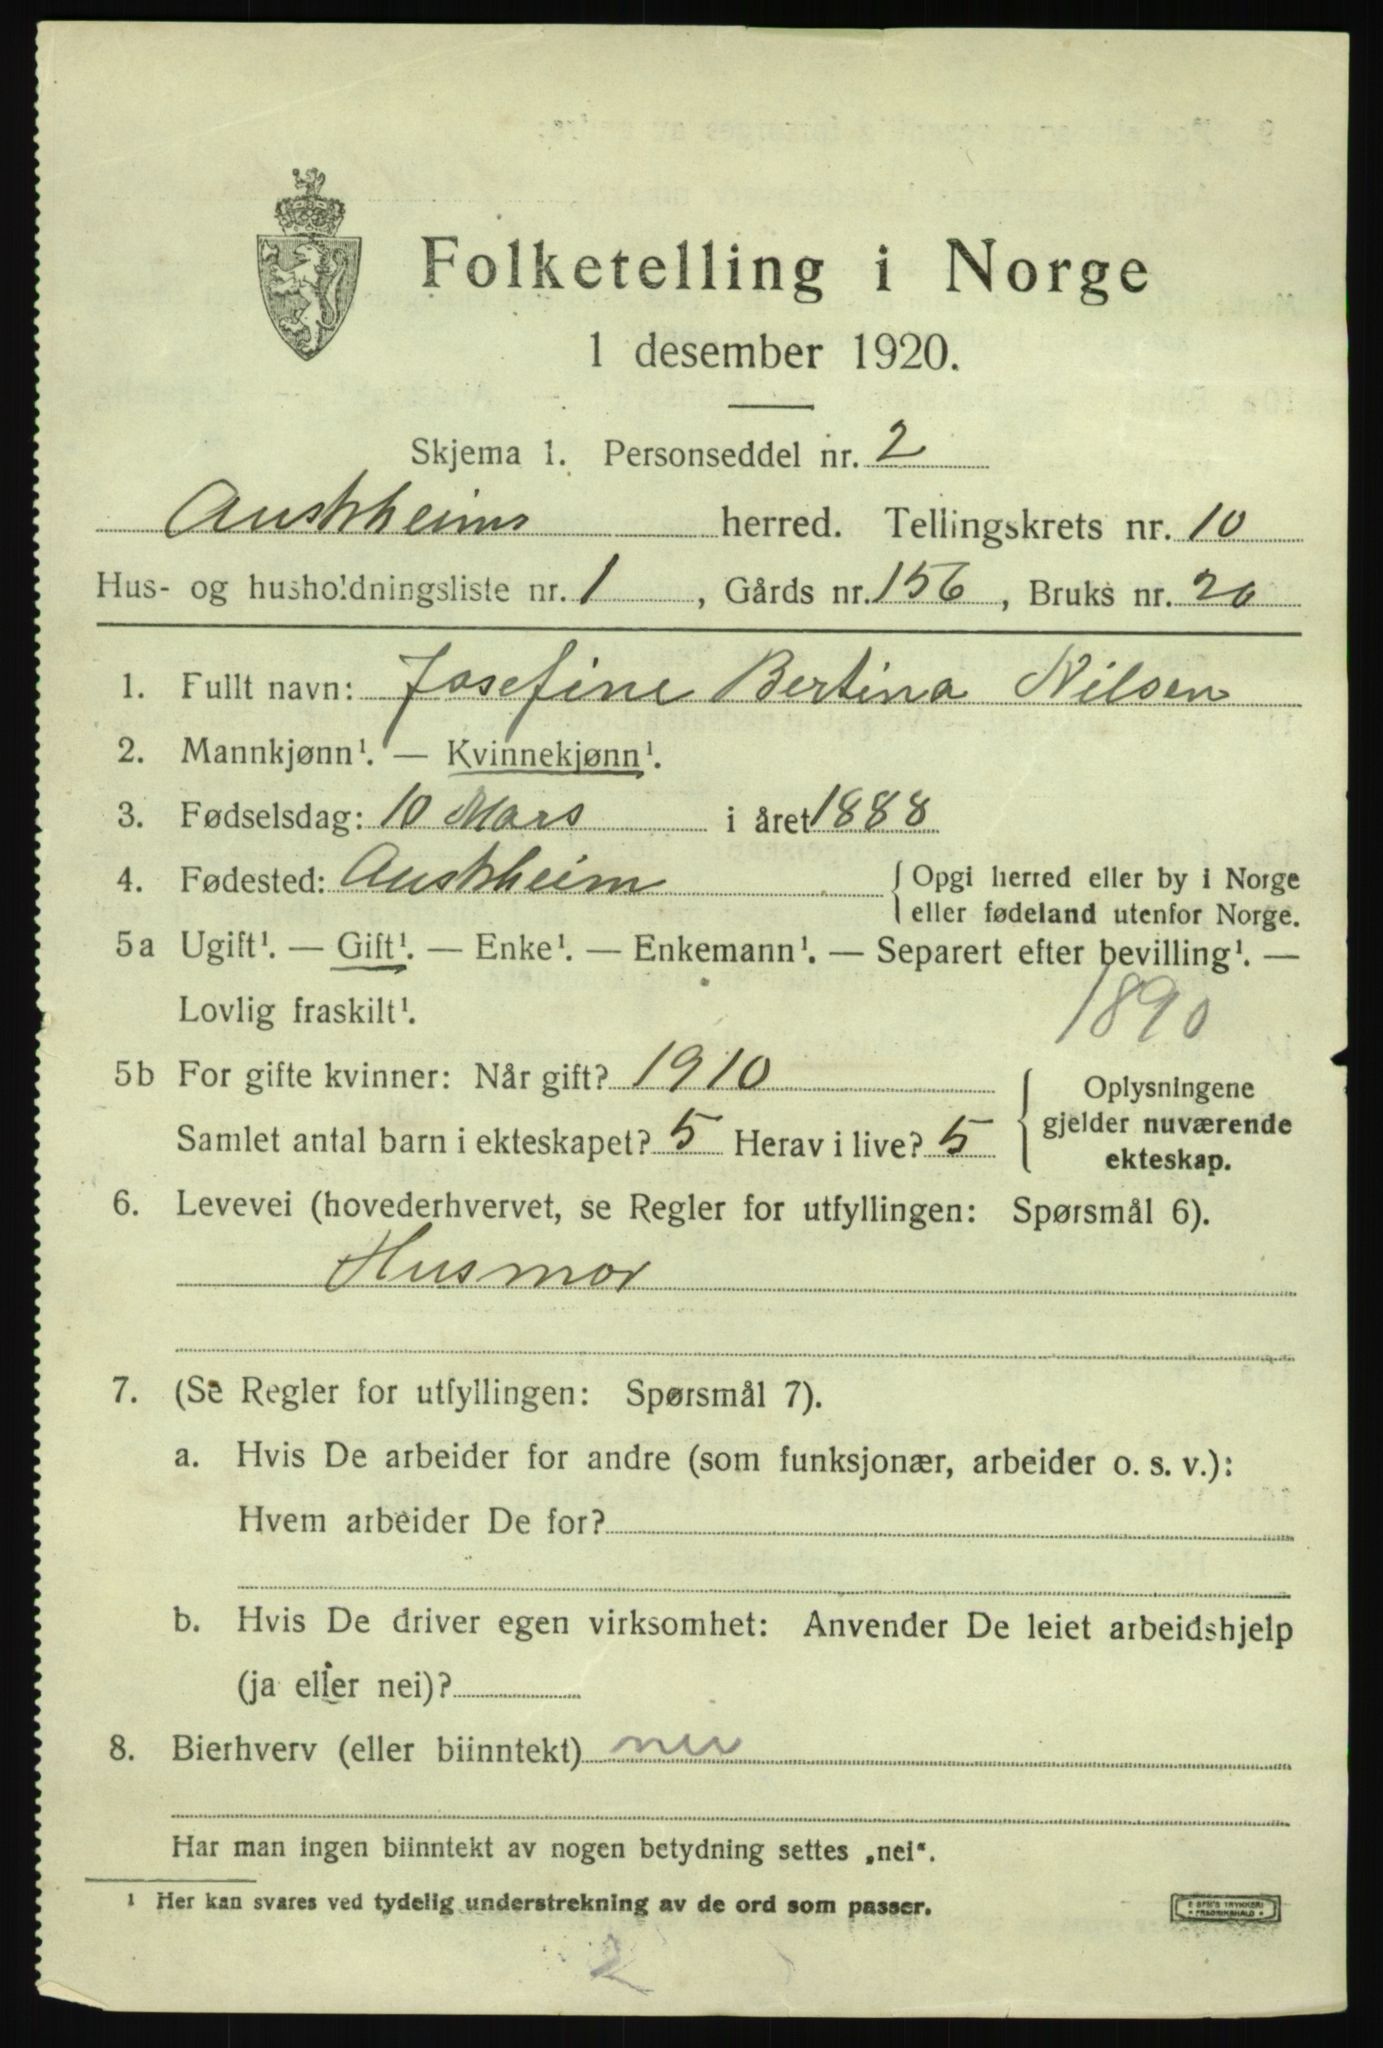 Folketelling i Norge
1 desember 1920.
Skjema 1. Personseddel nr. 2
Austrheims herred. Tellingskrets nr. 10
Hus- og husholdningsliste nr. 1, Gårds nr. 156, Bruks nr. 20
1. Fullt navn: Josefine Bertina Nilsen
2. Mannkjønn¹. — Kvinnekjønn¹.
3. Fødselsdag: 10 Mars i året 1888
4. Fødested: Austrheim { Opgi herred eller by i Norge
eller fødeland utenfor Norge.
5a Ugift¹. — Gift¹. — Enke¹. — Enkemann¹. — Separert efter bevilling¹. —
Lovlig fraskilt¹. 1890
5b For gifte kvinner: Når gift? 1910
Samlet antal barn i ekteskapet? 5 Herav i live? 5
{ Oplysningene
gjelder nuværende
ekteskap.
6. Levevei (hovederhvervet, se Regler for utfyllingen: Spørsmål 6).
Husmor
7. (Se Regler for utfyllingen: Spørsmål 7).
a. Hvis De arbeider for andre (som funksjonær, arbeider o. s. v.):
Hvem arbeider De for?
b. Hvis De driver egen virksomhet: Anvender De leiet arbeidshjelp
(ja eller nei)?
8. Bierhverv (eller biinntekt) nei
Har man ingen biinntekt av nogen betydning settes „nei“.
¹ Her kan svares ved tydelig understrekning av de ord som passer.
2